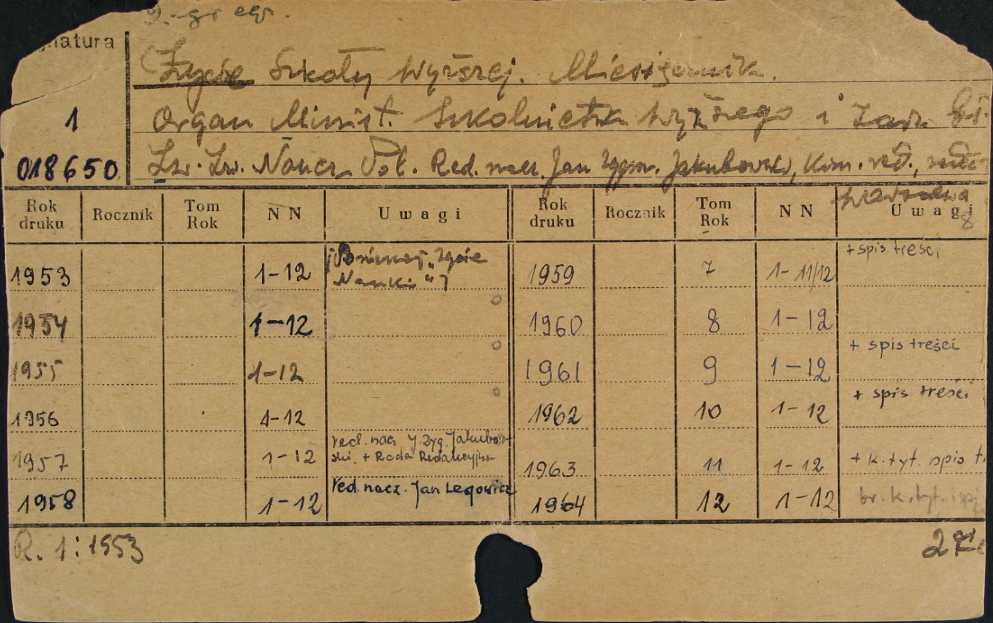 Życie Szkoły Wyższej. Miesięcznik.
Organ Minist. Szkolnictwa Wyższego i Zarz. Gł.
1
018650
Zw. Zw. Naucz. Pol. Red. nacz. Jan Zygm. Jakubowski, Kom. red.,
Warszawa
8
Rok druku Rocznik Tom Rok NN Uwagi Rok druku Rocznik Tom Rok NN Uwagi
1953 1-12 "Życie Nauki"] 1959 7 1-11/12 + spis treści
1954 1-12 1960 8 1-12
1955 1-12 1961 9 1-12 + spis treści
1956 1-12 1962 10 1-12 + spis treści
1957 1-12 red. nacz. J. Zyg. Jakubowski. + Rada Redakcyjna 1963 11 1-12 + k. tyt. spis
1958 1-12 red. nacz. Jan Legowicz 1964 12 1-12 br. k. tyt. i
R. 1: 1953